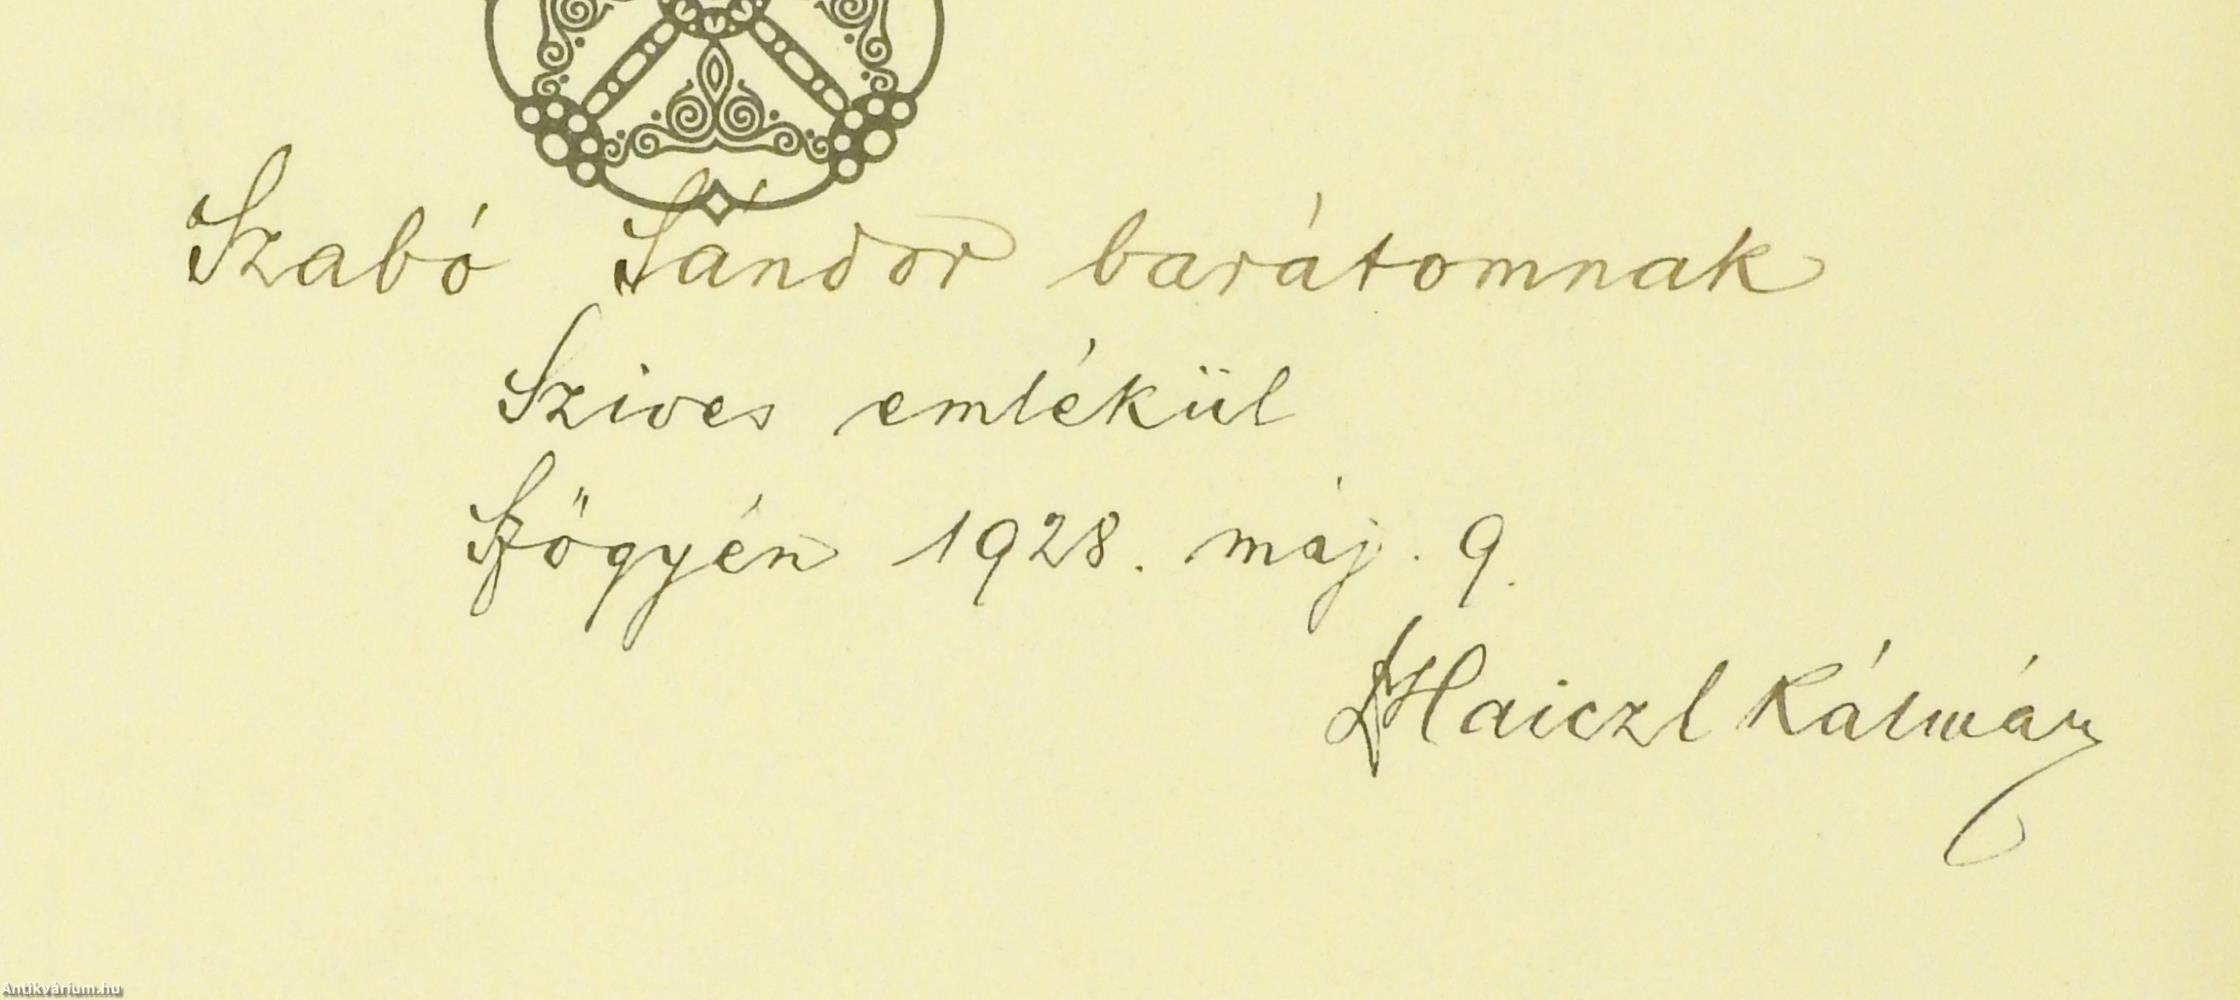 Szabó Sándor barátomnak
Szives emlékül
Szőgyén 1928. máj. 9.
Haiczl Kálmán
Antikvárium.hu